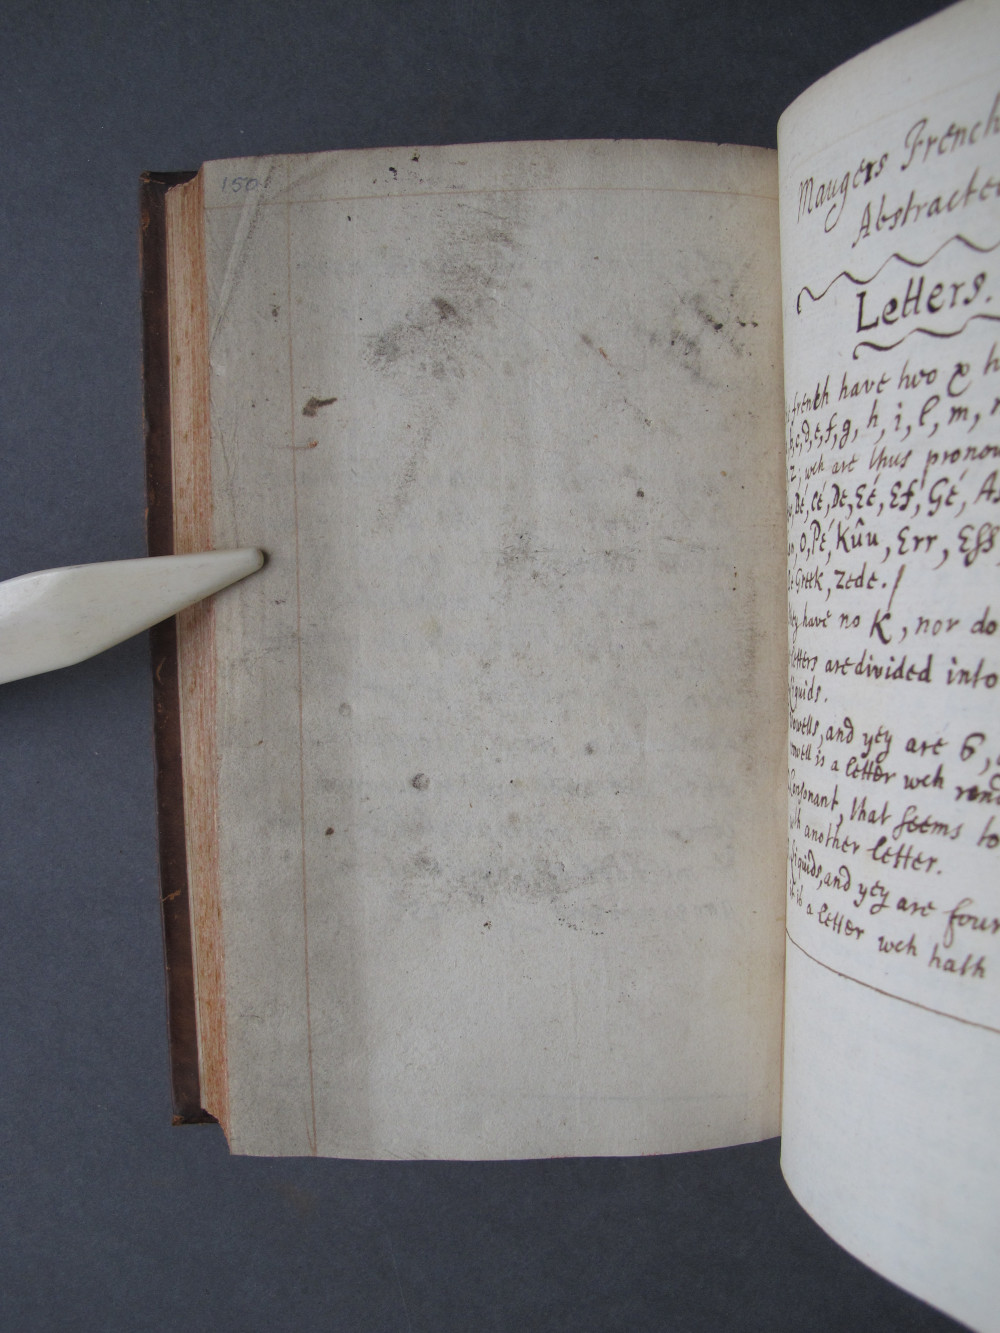 150
Maugers French
Abstracte
Letters.
french have two & h
c, d, e, f, g, h, i, l, m, n
z; wch are thus pronou
Bé, cé, Dé, Eé, Ef, Gé, As
O, Pé, Kûu, Err, Ess,
Greek, Zede. /
have no K, nor do
letters are divided into
iquids.
owells, and yey are 6, a
owell is a letter wch rend
Consonant, that seems to
another letter.
iquids, and yey are four
is a letter wch hath